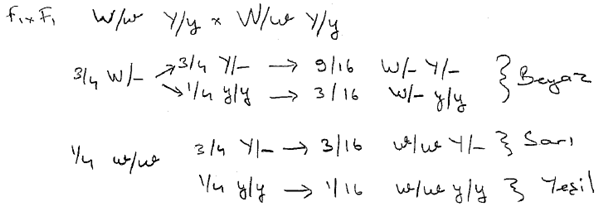 F1 x F1 W/w Y/y x W/w Y/y
3/4 W/- 3/4 Y/- → 9/16 W/- Y/- } Beyaz
1/4 y/y → 3/16 W/- y/y
1/4 w/w 3/4 Y/- → 3/16 w/w Y/- } Sarı
1/4 y/y → 1/16 w/w y/y } Yeşil